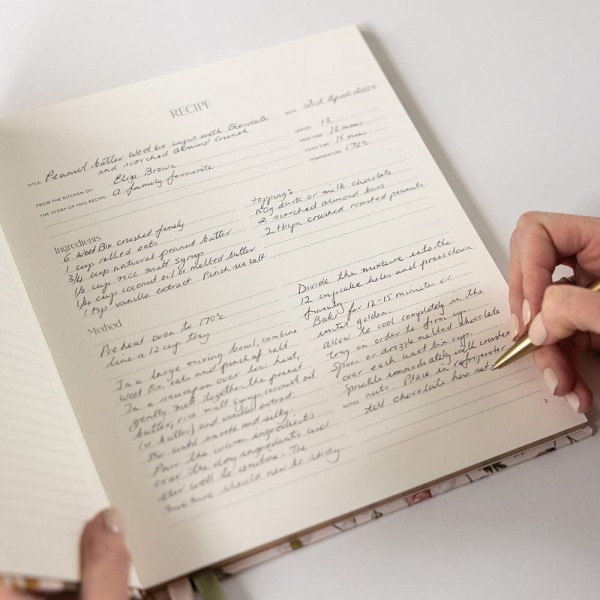 RECIPE
TITLE: Peanut butter Weet Bix cups with Chocolate
and scorched almond crunch
DATE 2nd April 2025
FROM THE KITCHEN OF: Eliza Brown
THE STORY OF THIS RECIPE: A family favourite
SERVES 12
PREP TIME 10 mins
COOK TIME 15 mins
TEMPERATURE 170°C
Ingredients
6 Weet Bix crushed finely
1 cup rolled oats
3/4 cup natural peanut butter
1/2 cup rice malt syrup
1/4 cup coconut oil or melted butter
1 tsp vanilla extract Pinch sea salt
Toppings
dark or milk chocolate
2 scorched almond bars
2 tbsps crushed roasted peanuts.
Method
Preheat oven to 170°C
line a 12 cup tray
In a large mixing bowl, combine
Weet Bix, oats and pinch of salt
In a saucepan over low heat,
gently melt together the peanut
butter, rice malt syrup, coconut oil
(or butter) and vanilla extract.
Stir until smooth and silky.
Pour the warm ingredients
over the dry ingredients and
stir well to combine. The
mixture should now be sticky.
Divide the mixture into the
12 cupcake holes and press down
firmly
Bake for 12-15 minutes or
until golden.
allow to cool completely in the
tray in order to firm up.
Spoon or drizzle melted chocolate
over each weet bix cup.
Sprinkle immediately with crushed
nuts. Place in refrigerator
NOTES
till chocolate has set
2